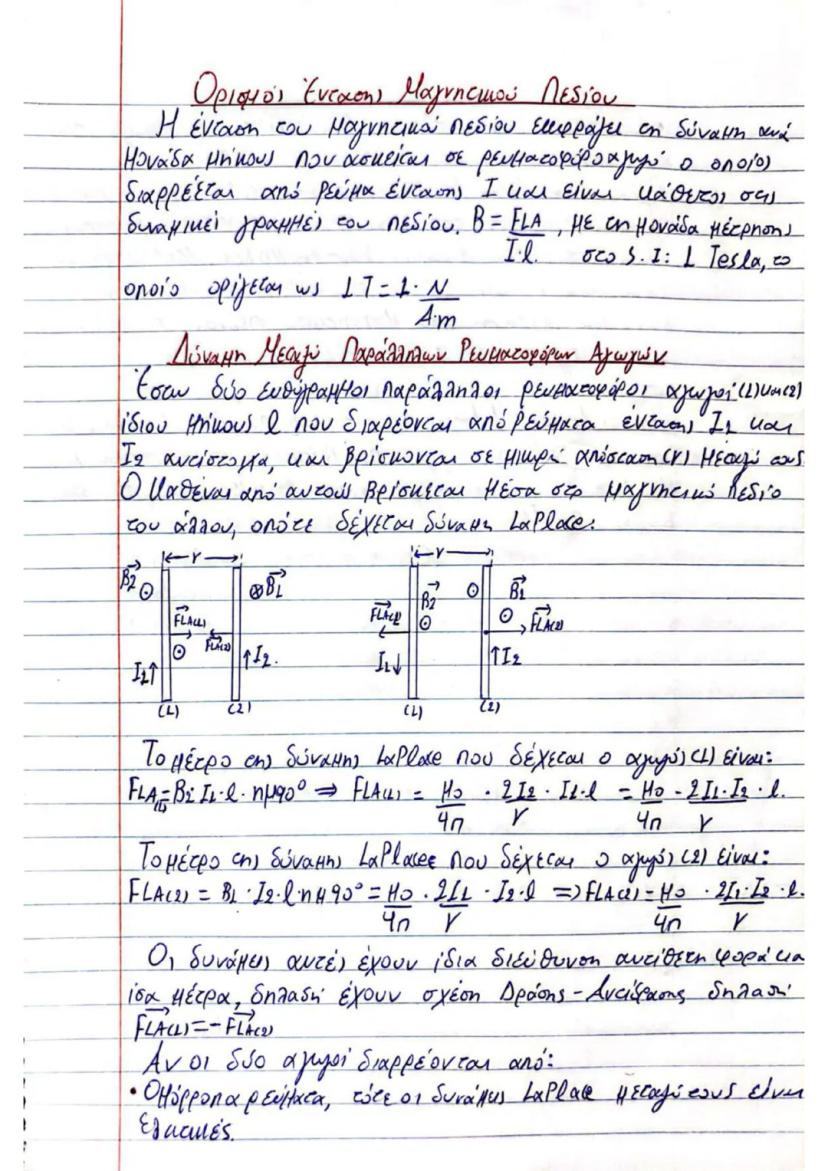 Ορισμός Έντασης Μαγνητικού Πεδίου
Η ένταση του μαγνητικού πεδίου εκφράζει τη δύναμη ανά
μονάδα μήκους που ασκείται σε ρευματοφόρο αγωγό ο οποίος
διαρρέεται από ρεύμα έντασης I και είναι κάθετος στις
δυναμικές γραμμές του πεδίου. B = FLA / I·l , με τη μονάδα μέτρησης
στο S.I: 1 Tesla, το
οποίο ορίζεται ως 1T = 1· N / A·m
Δύναμη Μεταξύ Παράλληλων Ρευματοφόρων Αγωγών
Έστω δύο ευθύγραμμοι παράλληλοι ρευματοφόροι αγωγοί (1) και (2)
ίδιου μήκους l που διαρέονται από ρεύματα έντασης I1 και
I2 αντίστοιχα, και βρίσκονται σε μικρή απόσταση (r) μεταξύ τους.
Ο Καθένας από αυτούς βρίσκεται μέσα στο μαγνητικό πεδίο
του άλλου, οπότε δέχεται δύναμη LaPlace.
r r
B2 B1 B2 B1
FLA(1) FLA(2) FLA(1) FLA(2)
I1 I2 I1 I2
(1) (2) (1) (2)
Το μέτρο της δύναμης LaPlace που δέχεται ο αγωγός (1) είναι:
FLA(1) = B2 I1·l·ημ90° ⇒ FLA(1) = μ0/4π · 2I2/r · I1·l = μ0/4π · 2I1·I2/r · l.
Το μέτρο της δύναμης LaPlace που δέχεται ο αγωγός (2) είναι:
FLA(2) = B1·I2·l·ημ90° = μ0/4π · 2I1/r · I2·l ⇒ FLA(2) = μ0/4π · 2I1·I2/r · l.
Οι δυνάμεις αυτές έχουν ίδια διεύθυνση αντίθετη φορά και
ίσα μέτρα, δηλαδή έχουν σχέση Δράσης - Αντίδρασης δηλαδή
FLA(1) = - FLA(2)
Αν οι δύο αγωγοί διαρρέονται από:
• Ομόρροπα ρεύματα, τότε οι δυνάμεις LaPlace μεταξύ τους είναι
ελκτικές.